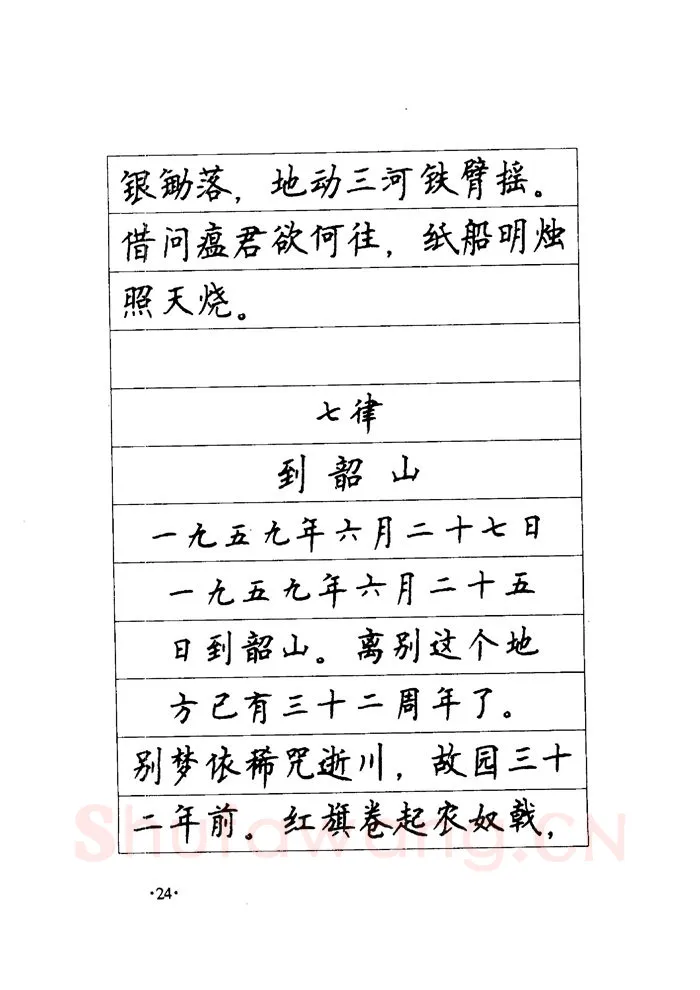 银锄落，地动三河铁臂摇。
借问瘟君欲何往，纸船明烛
照天烧。
七律
到韶山
一九五九年六月二十七日
一九五九年六月二十五
日到韶山。离别这个地
方已有三十二周年了。
别梦依稀咒逝川，故园三十
二年前。红旗卷起农奴戟，
Shufawang.CN
·24·